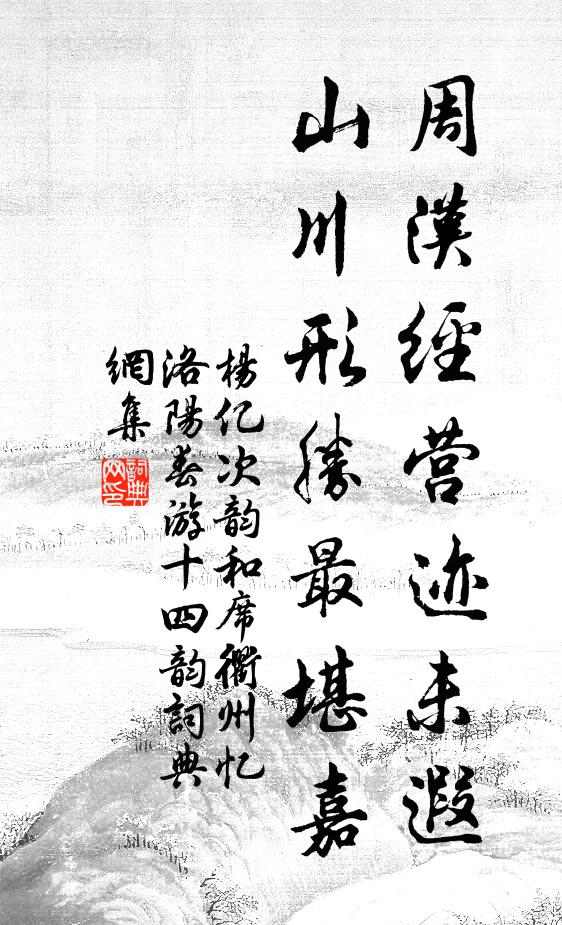 周漢經营迹未遐
山川形勝最堪嘉
楊亿次韵和席衢州忆
洛陽春游十四韵詞典
網集
詞典
网印